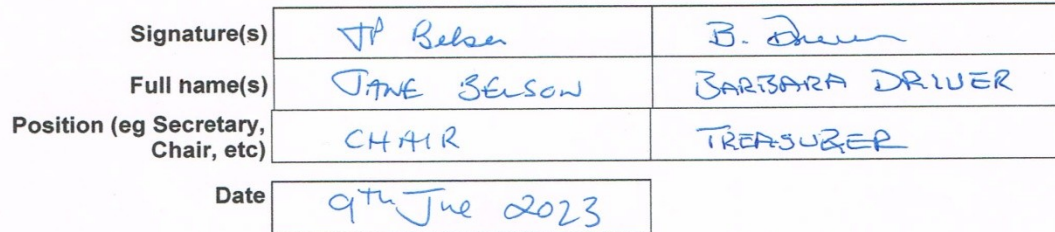 Signature(s) JP Belson B. Driver
Full name(s) JANE BELSON BARBARA DRIVER
Position (eg Secretary,
Chair, etc) CHAIR TREASURER
Date 9th June 2023